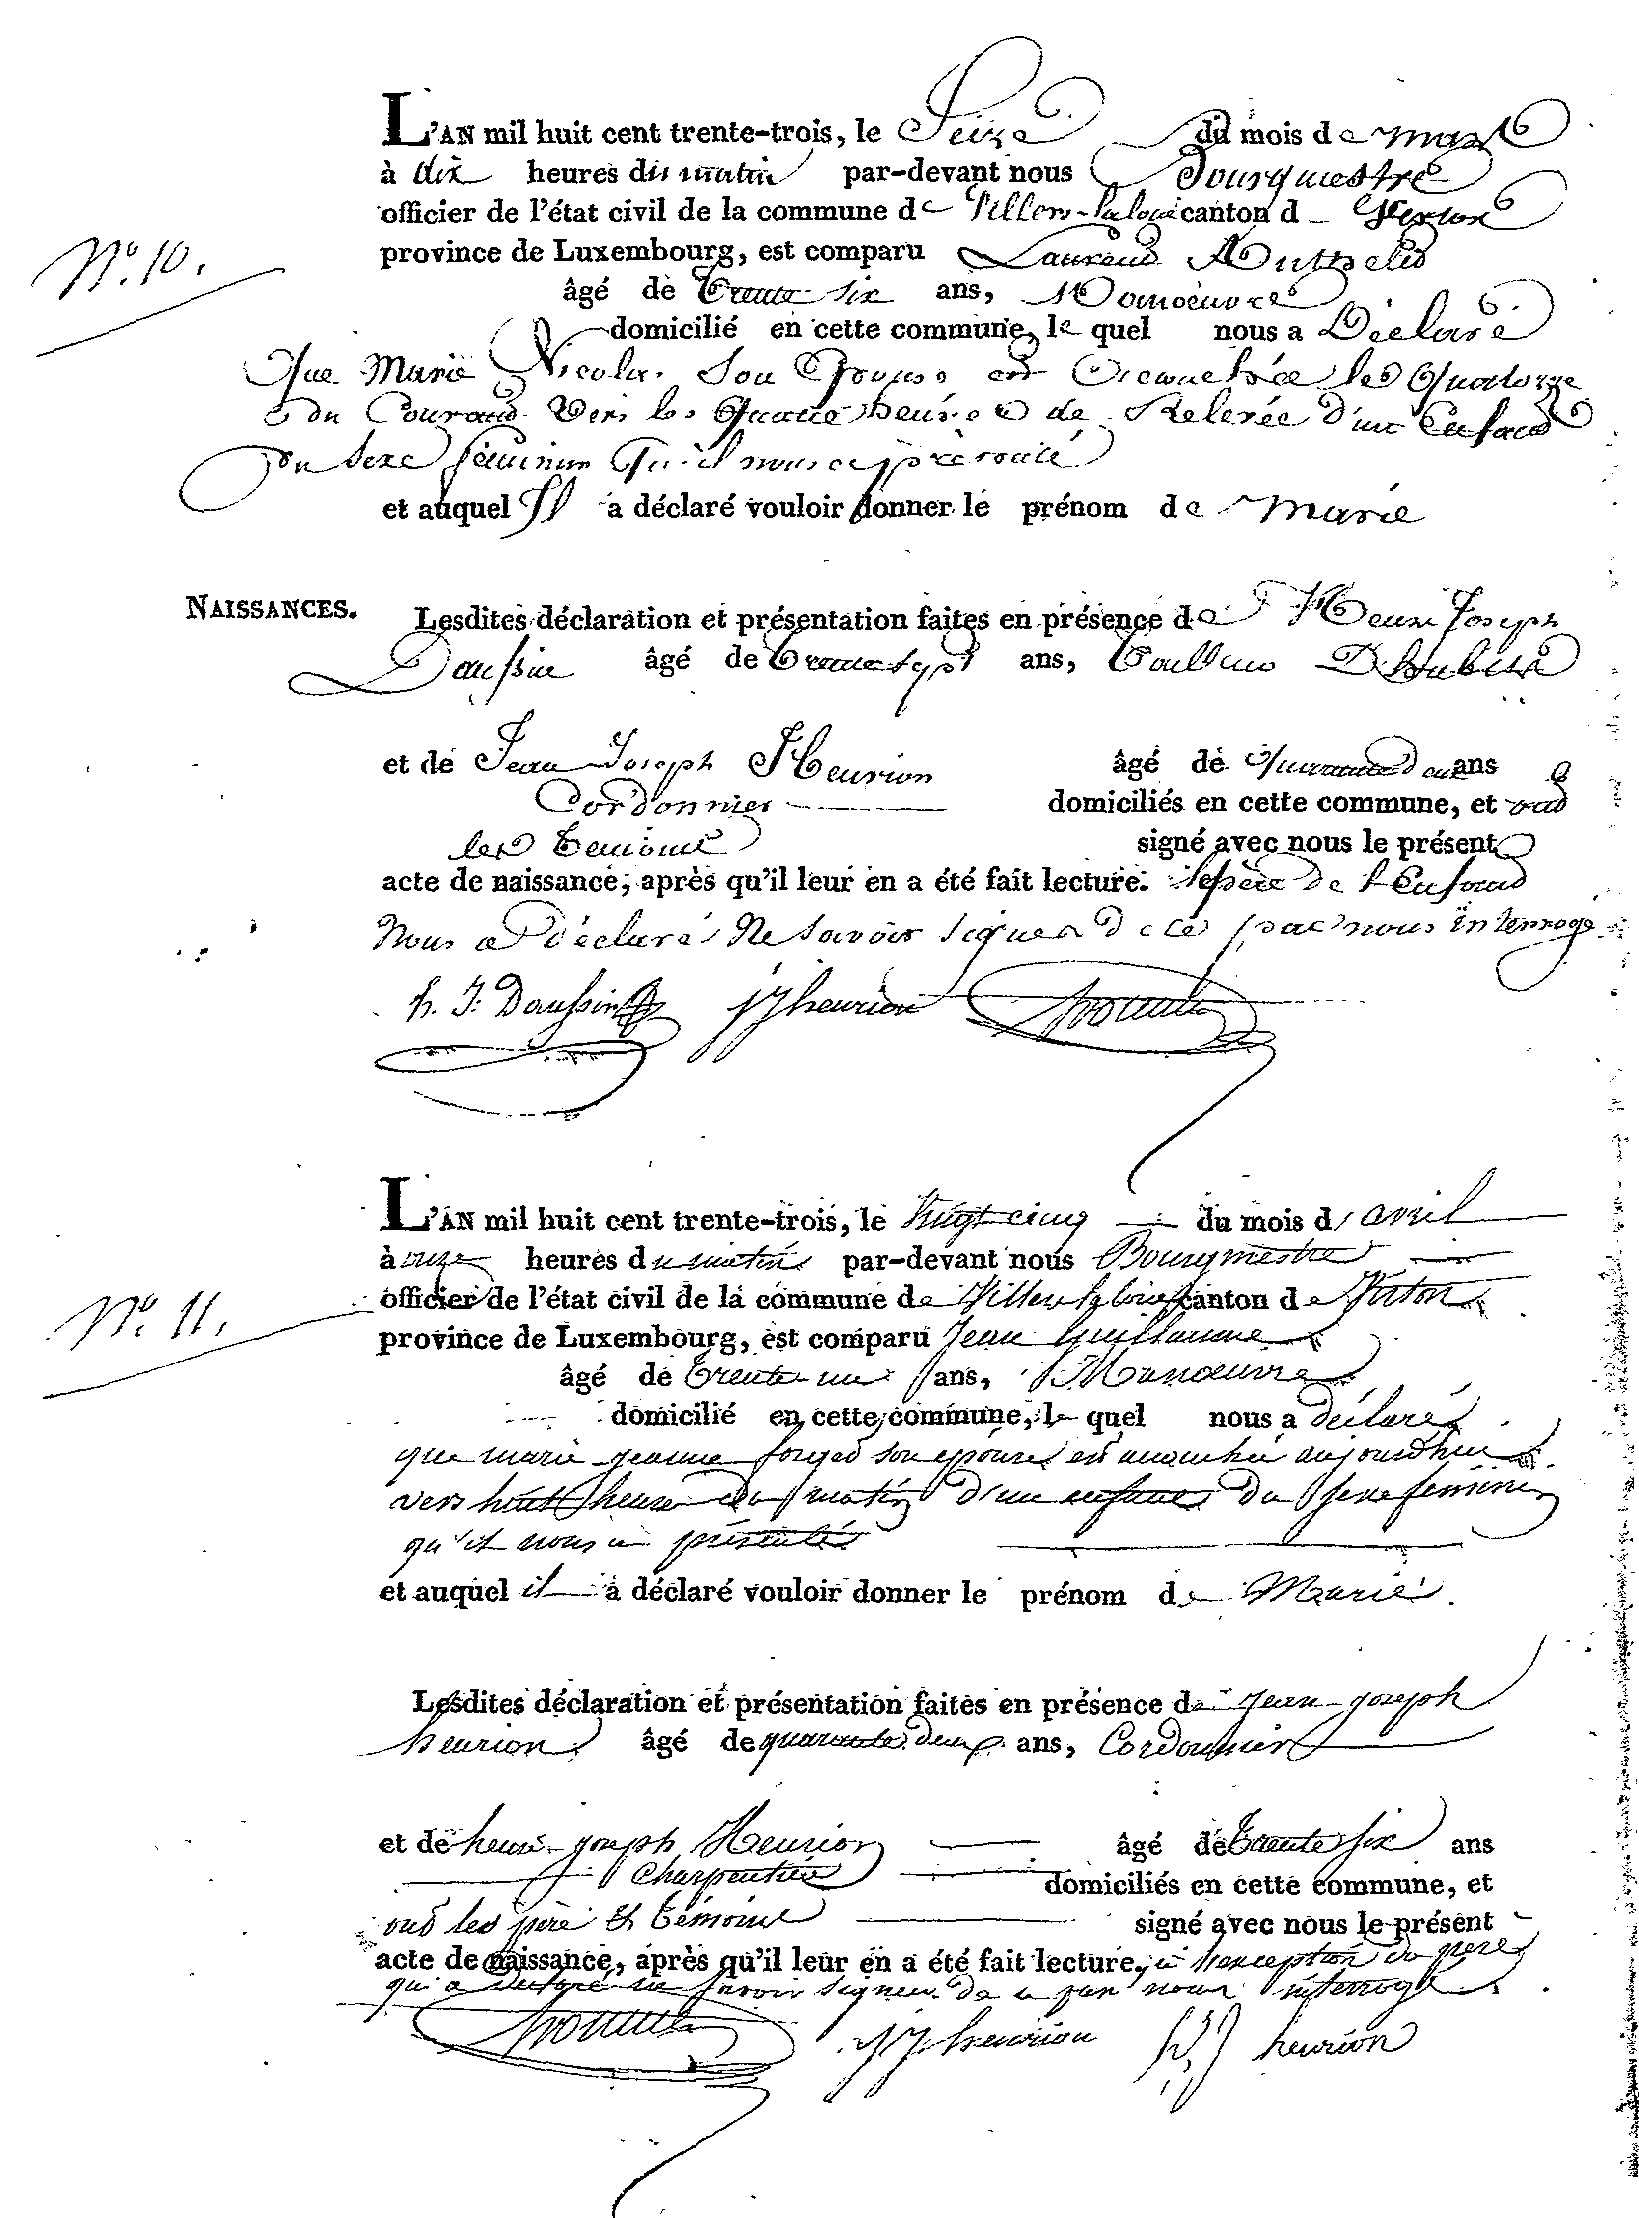 L'AN mil huit cent trente-trois, le Seize du mois de mars
à dix heures du matin par-devant nous Bourgmestre
officier de l'état civil de la commune de Villers-laloue canton d Virton
N° 10.
province de Luxembourg, est comparu Laurend
âgé de Trente Six ans, Manoeuvre
domicilié en cette commune, le quel nous a Déclaré
Que Marie Nicolas Son Epouse est Accouchée les Quatorze
du Courand Vers les Quatre heures de Relevée d'un Enfand
du Sexe féminin Qu'il nous a présenté
et auquel Il a déclaré vouloir donner le prénom de Marie
NAISSANCES.
Lesdites déclaration et présentation faites en présence de Henri Joseph
Daussin âgé de Trente Sept ans,
et de Jean Joseph Henrion âgé de Quarante deux ans
Cordonnier domiciliés en cette commune, et ond
les Temoins signé avec nous le présent
acte de naissance, après qu'il leur en a été fait lecture. le père de l'Enfand
Nous a déclaré Ne Savoir Signer de ce par nous interrogé
h. J. Daussin J J henrion
L'AN mil huit cent trente-trois, le Vingt cinq du mois d' avril
à onze heures du matin par-devant nous Bourgmestre
officier de l'état civil de la commune de Villers laloue canton de Virton
N° 11.
province de Luxembourg, est comparu Jean Guillaume
âgé de Trente un ans, Manoeuvre
domicilié en cette commune, le quel nous a déclaré
que marie jeanne forget son epouse est accouchée aujourd'hui
vers huit heure du matin d'un enfant du sexe féminin
qu'il nous a présenté
et auquel il a déclaré vouloir donner le prénom de Marie
Lesdites déclaration et présentation faites en présence de jean-joseph
henrion âgé de quarante deux ans, Cordonnier
et de henri joseph Henrion âgé de Trente six ans
Charpentier domiciliés en cette commune, et
ond les père et témoins signé avec nous le présent
acte de naissance, après qu'il leur en a été fait lecture, à l'exception du père
qui a déclaré ne savoir signer de ce par nous interrogé
J J henrion h J henrion